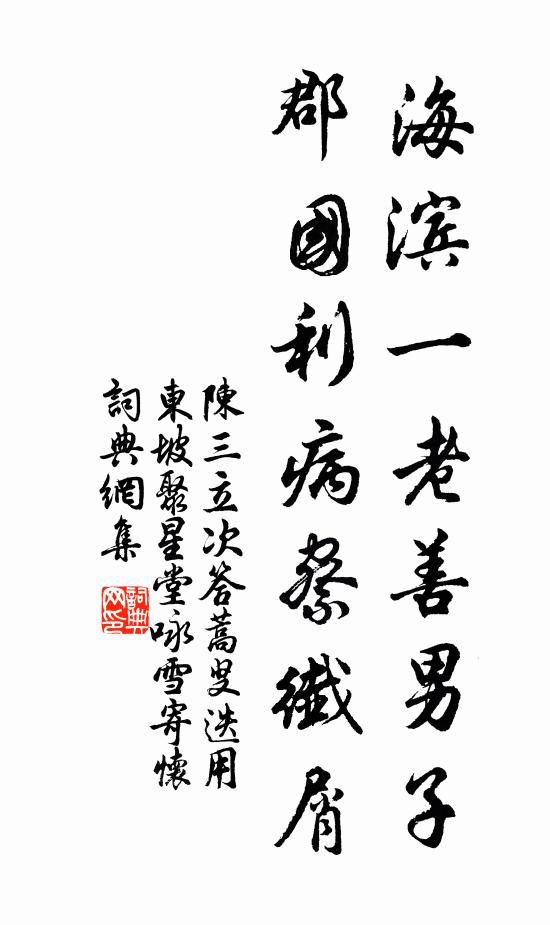 海滨一老善男子
郡國利病察纖屑
陳三立次答蒿叟迭用
東坡聚星堂咏雪寄懷
詞典網集
詞典网印